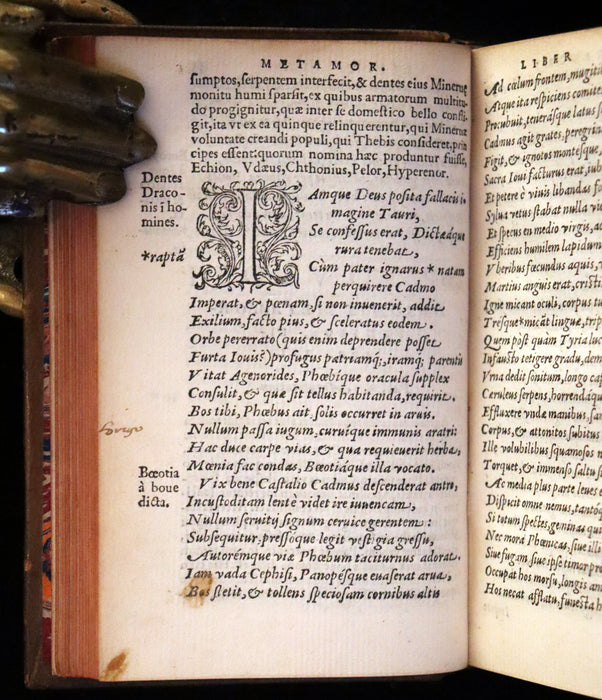 METAMOR.
sumptos, serpentem interfecit, & dentes eius Mineruę
monitu humi sparsit, ex quibus armatorum multitu
do progignitur, quæ inter se domestico bello confli
git, ita vt ex ea quinque relinquerentur, qui Mineruæ
voluntate creandi populi, qui Thebis consideret, prin
cipes essent: quorum nomina hæc produntur fuisse,
Echion, Vdæus, Chthonius, Pelor, Hyperenor.
Dentes
Draco-
nis ĩ ho-
mines.
*raptā
IAmque Deus posita fallacis i-
magine Tauri,
Se confessus erat, Dictæáque
rura tenebat,
Cùm pater ignarus * natam
perquirere Cadmo
Imperat, & pœnam, si non inuenerit, addit
Exilium, facto pius, & sceleratus eodem.
Orbe pererrato (quis enim deprendere posset
Furta Iouis?) profugus patriamq;, iramq; parentis
Vitat Agenorides, Phœbíque oracula supplex
Consulit, & quæ sit tellus habitanda, requirit.
Bos tibi, Phœbus ait, solis occurret in aruis,
Nullum passa iugum, curuíque immunis aratri:
Hac duce carpe vias, & qua requieuerit herba,
Mœnia fac condas, Bœotiáque illa vocato.
Bœotia
à boue
dicta.
Vix bene Castalio Cadmus descenderat antro,
Incustoditam lentè videt ire iuuencam,
Nullum seruitij signum ceruice gerentem:
Subsequitur, pressóque legit vestigia gressu,
Autorémque viæ Phœbum taciturnus adorat.
Iam vada Cephisi, Panopésque euaserat arua,
Bos stetit, & tollens speciosam cornibus altis
LIBER
Ad cœlum frontem, mugitu
Atque ita respiciens comite
Procubuit, teneràsque latus s
Cadmus agit grates, peregrin
Figit, & ignotos montesque,
Sacra Ioui facturus erat, iub
Et petere è viuis libandas fo
Sylua vetus stabat nulla vi
Et specus en medio virgis, ac
Efficiens humilem lapidum
Vberibus fœcundus aquis,
Martius anguis erat, cristi
Igne micant oculi, corpus tu
Trésque * micāt linguæ, trip
Quem pòst quam Tyria luc
Infausto tetigere gradu, dem
Vrna dedit sonitum, longo cap
Cæruleus serpens, horrendáque
Effluxere vndæ manibus, san
Corpus, & attonitos subitus
Ille volubilibus squamosos n
Torquet, & immenso saltu s
Ac media plus parte leues e
Dispicit omne nemus, tantóq
Si totum spectes, geminas qui
Nec mora Phœnicas, siue illi
Siue fugam, siue ipse timor pr
Occupat hos morsu, longis am
Hos necat afflatu, funesta h